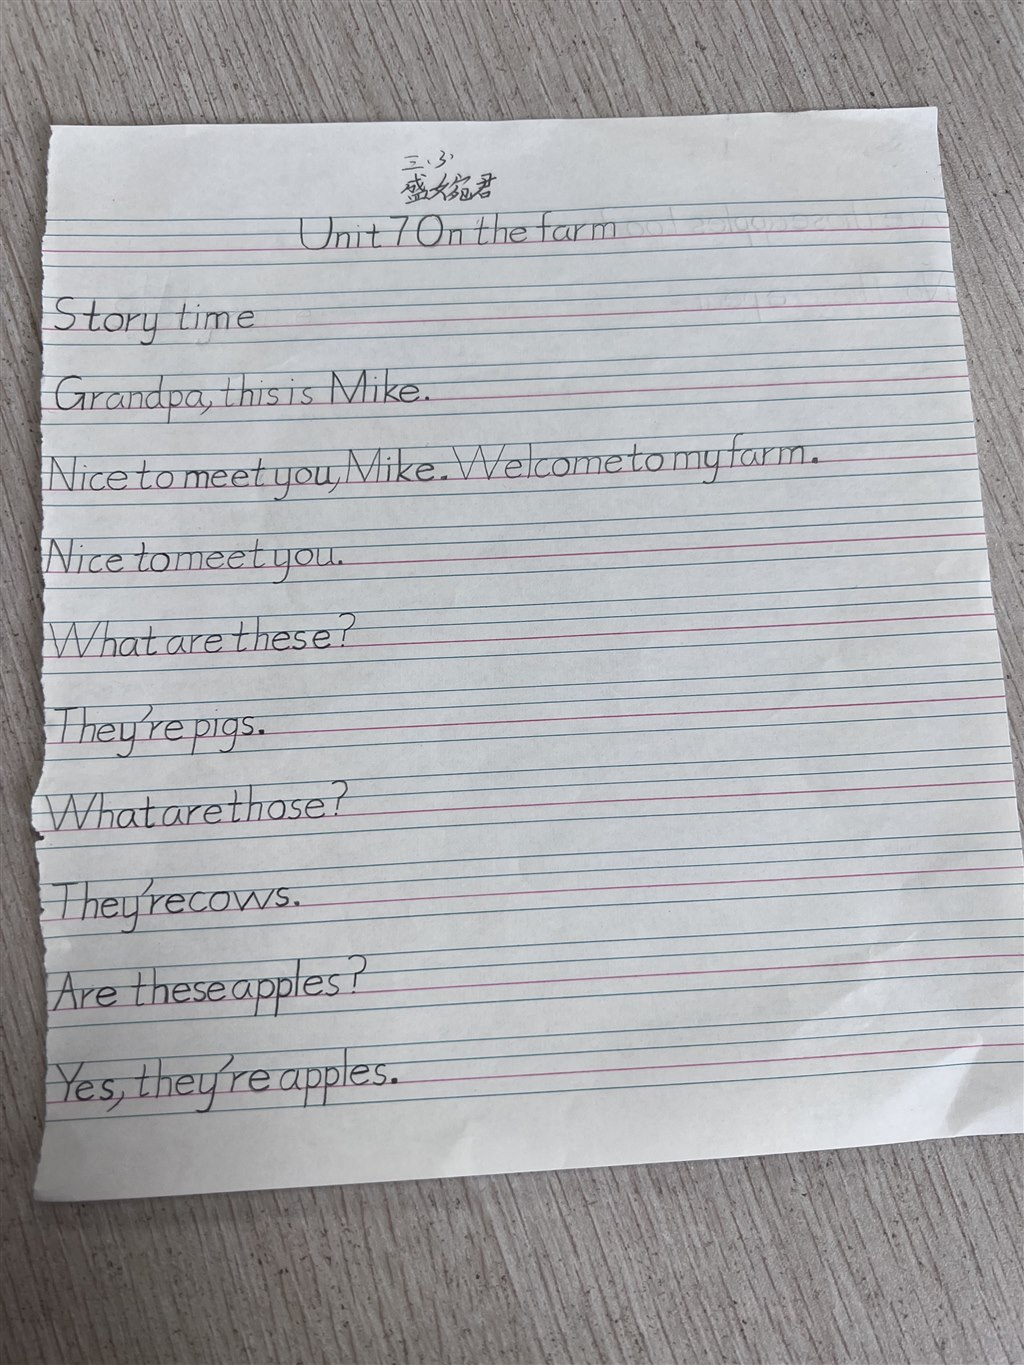 三.3.
盛婉君
Unit 7 On the farm
Story time
Grandpa, this is Mike.
Nice to meet you, Mike. Welcome to my farm.
Nice to meet you.
What are these?
They're pigs.
What are those?
They're cows.
Are these apples?
Yes, they're apples.